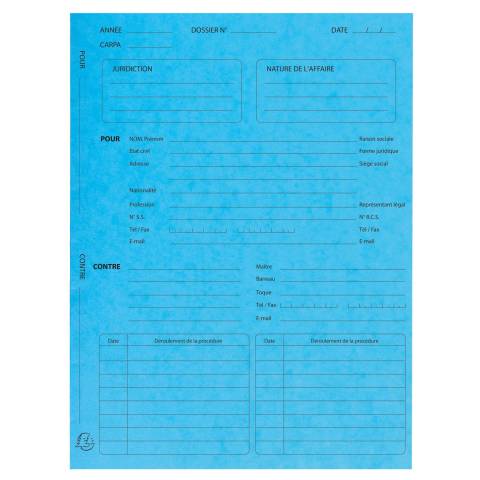 ANNEE DOSSIER N° DATE / /
CARPA
POUR
JURIDICTION NATURE DE L'AFFAIRE
POUR NOM, Prénom Raison sociale
Etat civil Forme juridique
Adresse Siège social
Nationalité
Profession Représentant légal
N° S.S. N° R.C.S.
Tél / Fax Tél / Fax
E-mail E-mail
CONTRE
CONTRE Maître
Barreau
Toque
Tél / Fax
E-mail
Date Déroulement de la procédure Date Déroulement de la procédure